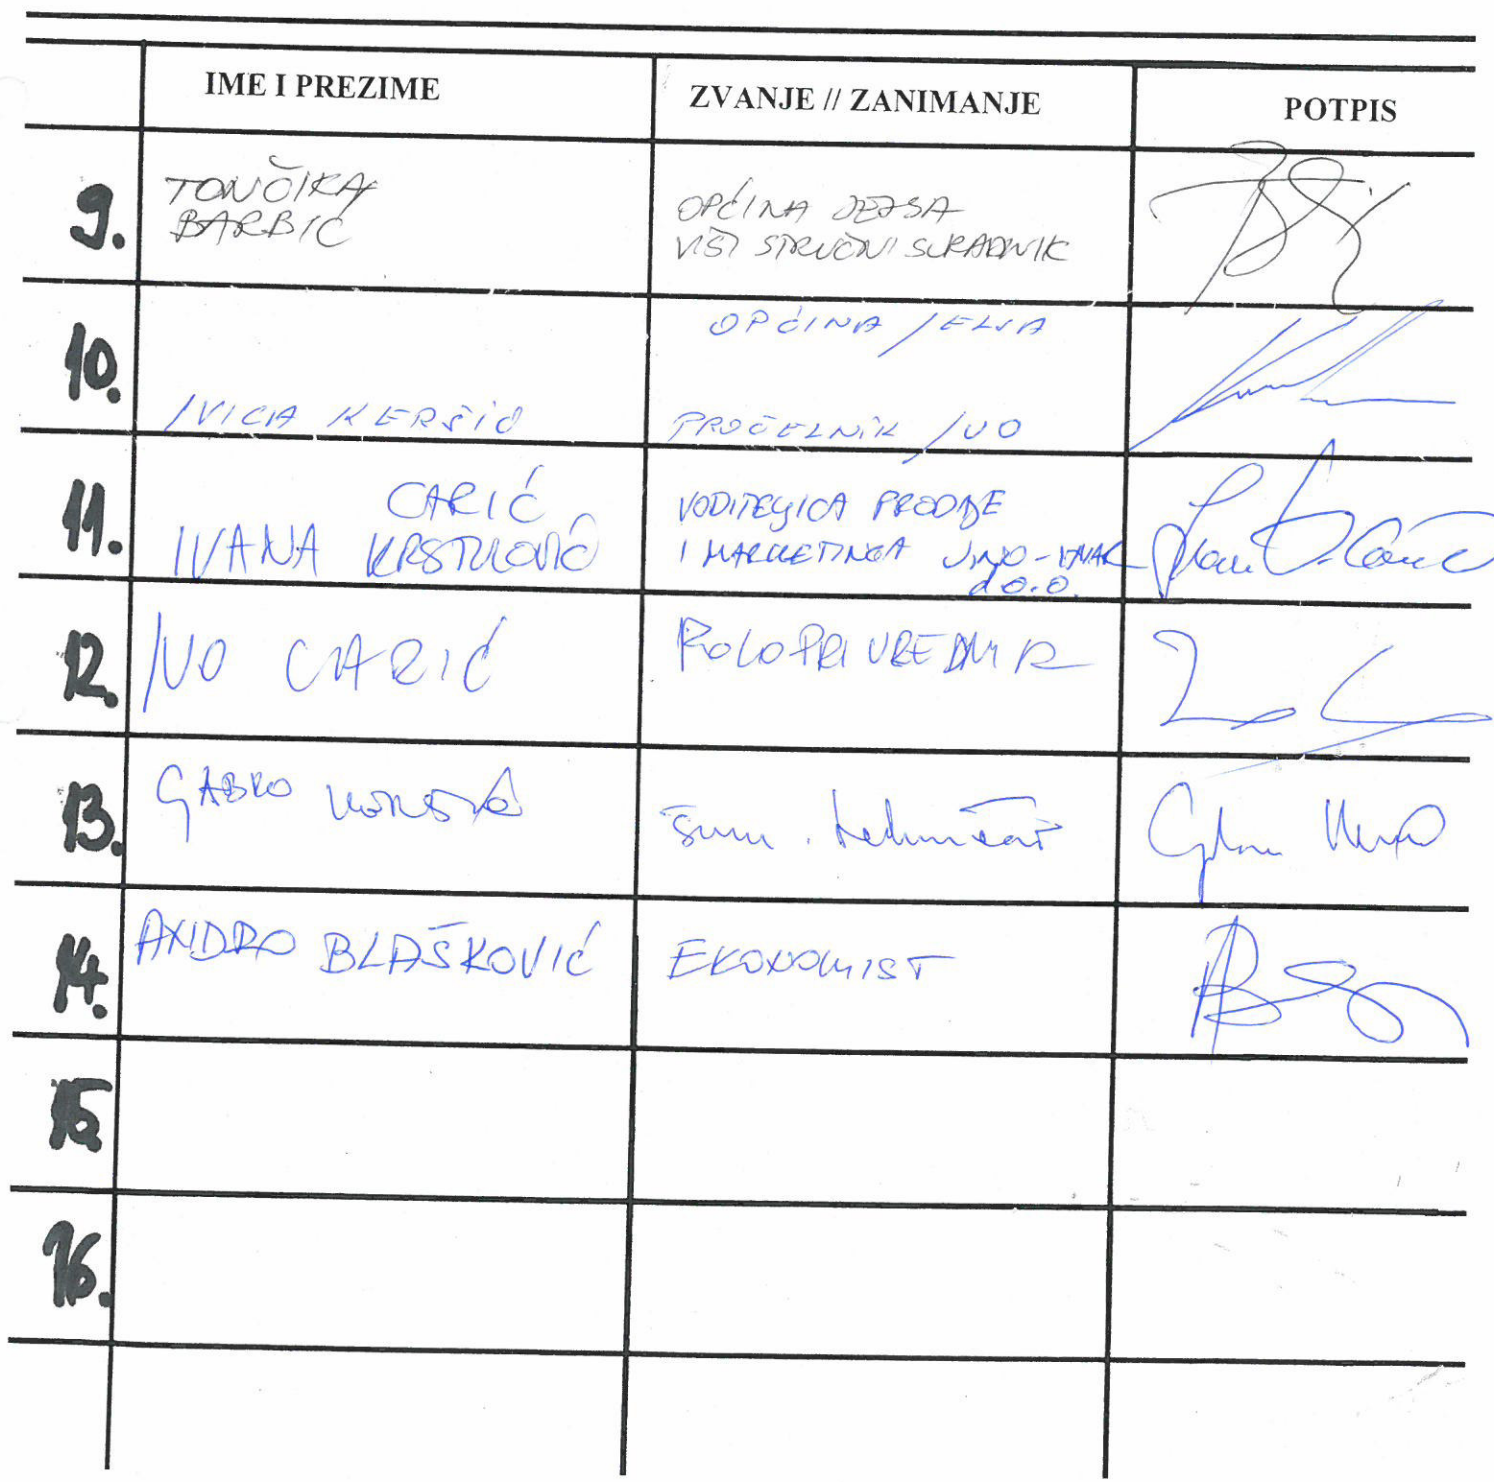 IME I PREZIME
ZVANJE // ZANIMANJE
POTPIS
9.
TONČIKA
BARBIĆ
OPĆINA JELSA
VIŠI STRUČNI SURADNIK
10.
IVICA KERŠIĆ
OPĆINA JELSA
PROČELNIK JUO
11.
CARIĆ
IVANA KRSTULOVIĆ
VODITELJICA PRODAJE
I MARKETINGA VINO-
d.o.o.
12.
IVO CARIĆ
POLOPRIVREDNIK
13.
GABRO
šum. tehničar
14.
ANDRO BLAŠKOVIĆ
EKONOMIST
15
16.